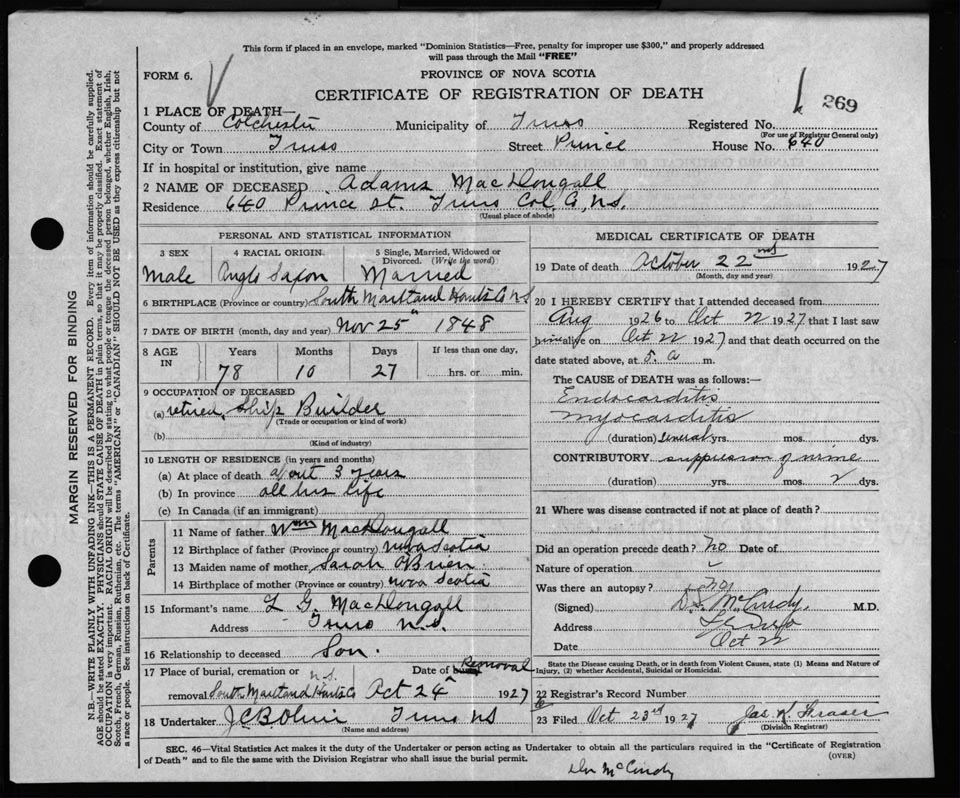 This form if placed in an envelope, marked "Dominion Statistics—Free, penalty for improper use $300," and properly addressed
will pass through the Mail "FREE"
FORM 6.
PROVINCE OF NOVA SCOTIA
CERTIFICATE OF REGISTRATION OF DEATH
269
1 PLACE OF DEATH—
County of Colchester Municipality of Truro Registered No.
(For use of Registrar General only)
City or Town Truro Street Prince House No. 640
If in hospital or institution, give name
2 NAME OF DECEASED Adams MacDougall
Residence 640 Prince St. Truro Col. Co, N.S.
(Usual place of abode)
PERSONAL AND STATISTICAL INFORMATION
3 SEX
Male
4 RACIAL ORIGIN.
Anglo Saxon
5 Single, Married, Widowed or
Divorced. (Write the word)
Married
6 BIRTHPLACE (Province or country) South Maitland Hants Co NS
7 DATE OF BIRTH (month, day and year) Nov 25" 1848
8 AGE
IN
Years Months Days If less than one day,
78 10 27 hrs. or min.
9 OCCUPATION OF DECEASED
(a) retired Ship Builder
(Trade or occupation or kind of work)
(b)
(Kind of industry)
10 LENGTH OF RESIDENCE (in years and months)
(a) At place of death about 3 years
(b) In province all his life
(c) In Canada (if an immigrant)
Parents
11 Name of father Wm MacDougall
12 Birthplace of father (Province or country) Nova Scotia
13 Maiden name of mother Sarah O'Brien
14 Birthplace of mother (Province or country) Nova Scotia
15 Informant's name L G. MacDougall
Address Truro N.S.
16 Relationship to deceased Son.
17 Place of burial, cremation or N.S. Date of burial Removal
removal South Maitland Hants Co Oct 24 1927
18 Undertaker Truro NS
(Name and address)
MEDICAL CERTIFICATE OF DEATH
19 Date of death October 22nd 1927
(Month, day and year)
20 I HEREBY CERTIFY that I attended deceased from
Aug 1926 to Oct 22 1927 that I last saw
him alive on Oct 22 1927 and that death occurred on the
date stated above, at 5. a m.
The CAUSE OF DEATH was as follows:—
Endocarditis
Myocarditis
(duration) Several yrs. mos. dys.
CONTRIBUTORY suppression of urine
(duration) yrs. mos. 2 dys.
21 Where was disease contracted if not at place of death?
Did an operation precede death? No Date of
Nature of operation
Was there an autopsy? No
(Signed) D.S. McCurdy. M.D.
Address Truro
Date Oct 22
State the Disease causing Death, or in death from Violent Causes, state (1) Means and Nature of
Injury, (2) whether Accidental, Suicidal or Homicidal.
22 Registrar's Record Number
23 Filed Oct 23rd 1927 Jas. K Fraser
(Division Registrar)
SEC. 46—Vital Statistics Act makes it the duty of the Undertaker or person acting as Undertaker to obtain all the particulars required in the "Certificate of Registration
of Death" and to file the same with the Division Registrar who shall issue the burial permit.
(OVER)
Dr McCurdy
MARGIN RESERVED FOR BINDING
N.B.—WRITE PLAINLY WITH UNFADING INK—THIS IS A PERMANENT RECORD. Every item of information should be carefully supplied.
AGE should be stated EXACTLY. PHYSICIANS should STATE CAUSE OF DEATH in plain terms, so that it may be properly classified. Exact statement of
OCCUPATION is very important. RACIAL ORIGIN will be described by stating to what people or tongue the deceased person belonged, whether English, Irish,
Scotch, French, German, Russian, Ruthenian, etc. The terms "AMERICAN" or "CANADIAN" SHOULD NOT BE USED as they express citizenship but not
a race or people. See instructions on back of Certificate.